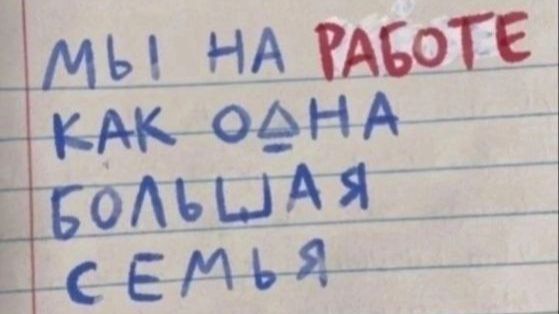 МЫ НА РАБОТЕ
КАК ОДНА
БОЛЬШАЯ
СЕМЬЯ